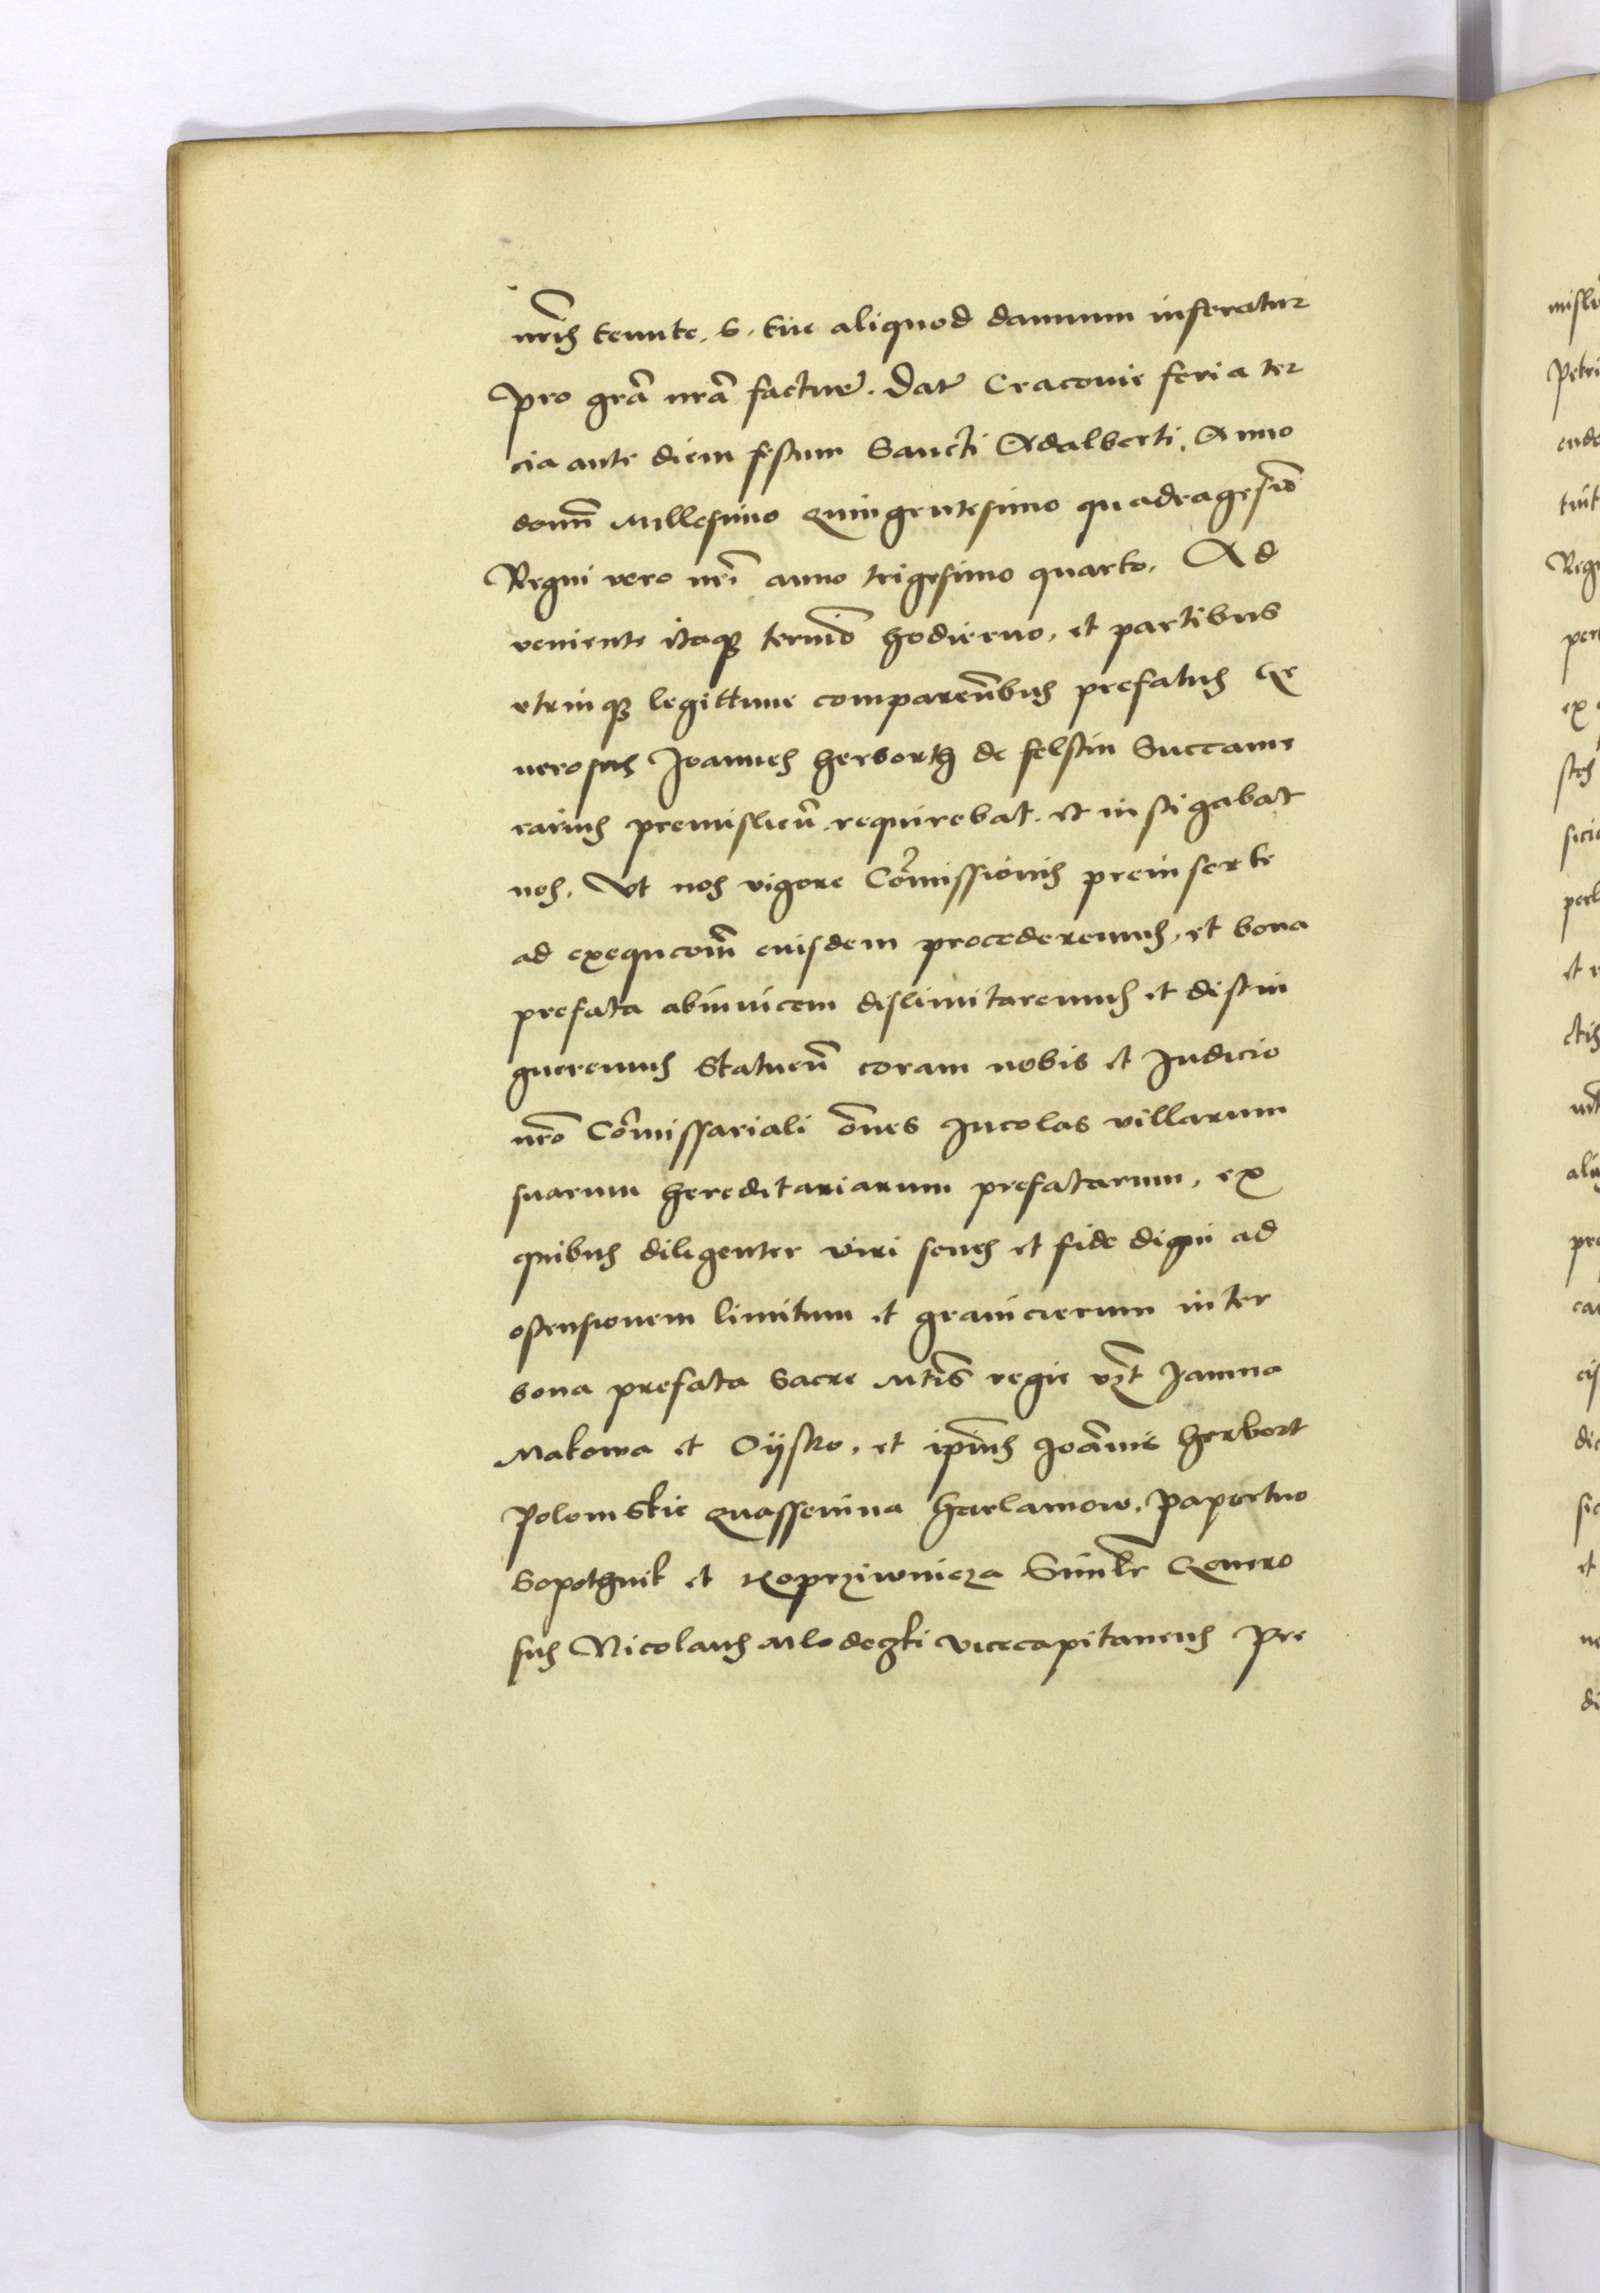 nrĩs tenute. S. tue aliquod damnum inferatur
pro grã nrã facture. Dat Cracovie feria ter
cia ante diem festum Sancti Adalberti. Anno
domñ Millesimo Quingentesimo quadragesiõ
Regni vero nrĩ anno trigesimo quarto. Ad
veniente itaq termiõ hodierno, et partibus
vtrinq legittime comparenñbus prefatus Ge
nerosus Joannes herborth de felstin Succame
rarius premislieñ. requirebat. et instigabat
nos. Vt nos vigore Cõmissionis preinserte
ad exequcoñm eiusdem procederemus, et bona
prefata abinuicem dislimitaremus et distin
gueremus Statueñ coram nobis et Judicio
nrõ Cõmissariali õnes Incolas villarum
suarum hereditariarum prefatarum, ex
quibus diligenter viri senes et fide digni ad
ostensionem limitum et granicierum inter
bona prefata Sacre Mtĩs regie vzt Jamna
Makowa et Oÿsko, et ipĩus Joãnnis herbort
Polomskie Quassenina harlamow. Papertno
Sopothnik et Koprziwnicza Simlr Genero
sus Nicolaus Mlodeczki vicecapitaneus Pre